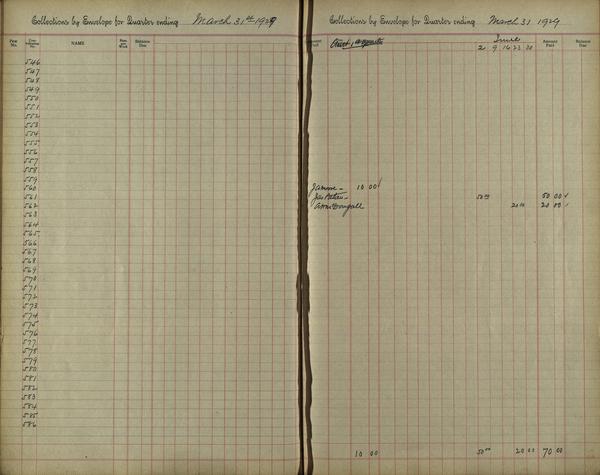 Collections by Envelope for Quarter ending March 31st 1929
Pew No.
NAME
Balance Due
546
547
548
549
550
551
552
553
554
555
556
557
558
559
560
561
562
563
564
565
566
567
568
569
570
571
572
573
574
575
576
577
578
579
580
581
582
583
584
585
586
Collections by Envelope for Quarter ending March 31 1929
June
Amount Paid
Balance Due
2 9 16 23 30
10 00
50 00 50 00
McDougall 20 00 20 00
10 00 50 00 20 00 70 00